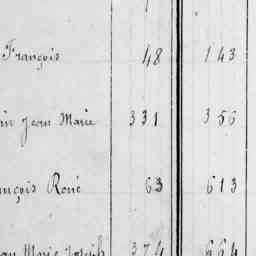 François 48 143
Jean Marie 331 356
François René 63 613
Marie Joseph 374 664